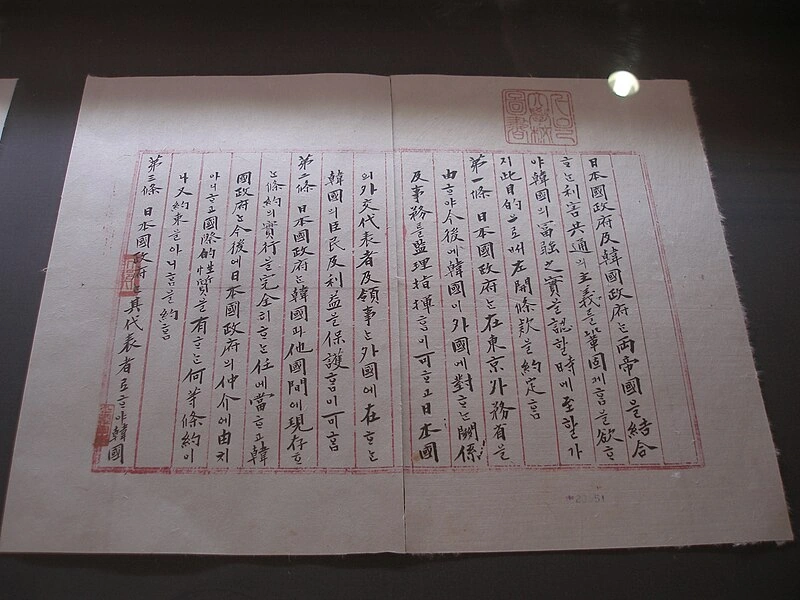 서울大學校圖書
日本國政府及韓國政府는兩帝國을結合
ᄒᆞ는利害共通의主義를鞏固케ᄒᆞᆷ을欲ᄒᆞ
야韓國의富强之實을認ᄒᆞᆯ時에至ᄒᆞᆯ가
지此目的으로ᄡᅥ左開條款을約定ᄒᆞᆷ
第一條 日本國政府는在東京外務省을
由ᄒᆞ야今後에韓國이外國에對ᄒᆞ는關係
及事務를監理指揮ᄒᆞᆷ이可ᄒᆞ고日本國
의外交代表者及領事는外國에在ᄒᆞ는
韓國의臣民及利益을保護ᄒᆞᆷ이可ᄒᆞᆷ
第二條 日本國政府는韓國과他國間에現存ᄒᆞ
는條約의實行을完全히ᄒᆞ는任에當ᄒᆞ고韓
國政府는今後에日本國政府의仲介에由치
아니ᄒᆞ고國際的性質을有ᄒᆞ는何等條約이
나又約束을아니ᄒᆞᆷ을約ᄒᆞᆷ
第三條 日本國政府는其代表者로ᄒᆞ야韓國